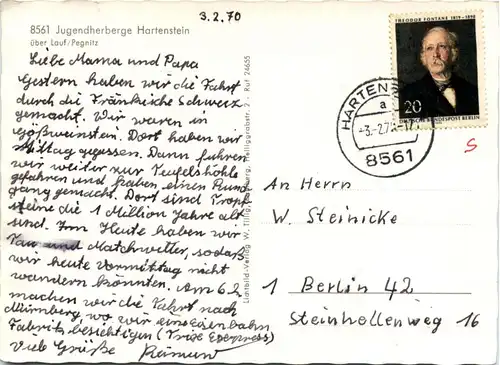 3.2.70
8561 Jugendherberge Hartenstein
über Lauf/Pegnitz
Liebe Mama und Papa
Gestern haben wir die Fahrt
durch die Fränkische Schweiz
gemacht. Wir waren in
Dort haben wir
Mittag gegessen. Dann fuhren
wir weiter zur Teufelshöhle
gefahren und haben einen Rund
gang gemacht. Dort sind Tropf
steine die 1 Million Jahre alt
sind. Heute haben wir
Tau und Matschwetter, sodaß
wir heute Vormittag nicht
wandern konnten. Am 6.2
machen wir die Fahrt nach
Nürnberg, wo wir eine Eisenbahn
Fabrik besichtigen
Viele Grüße Reimund
Lichtbild-Verlag W. Heiliggrabstr. 2 · Ruf 24655
THEODOR FONTANE 1819-1898
20
DEUTSCHE BUNDESPOST BERLIN
a
8561
S
An Herrn
W. Steinicke
1 Berlin 42
Steinhellenweg 16